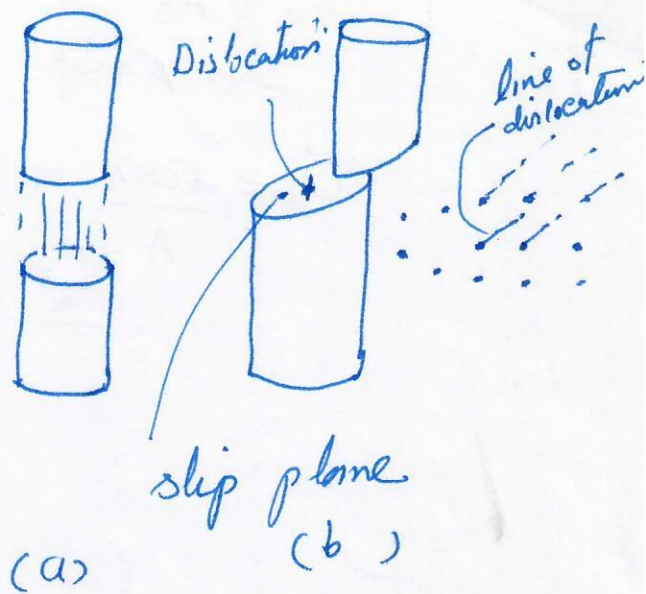 Dislocation
line of
dislocation
slip plane
(a)
(b)